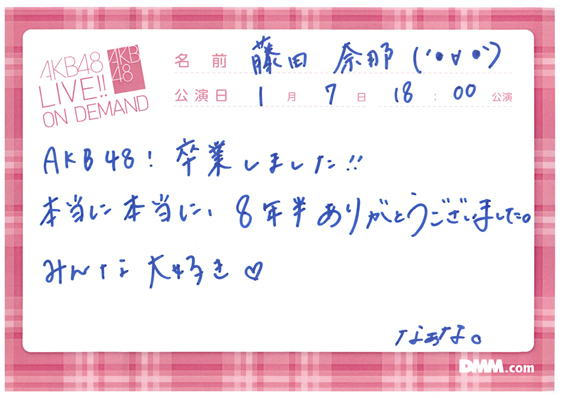 AKB48
LIVE!!
ON DEMAND
AKB
48
名前 藤田 奈那 (´•∀•`)
公演日 1月7日 18:00 公演
AKB48! 卒業しました!!
本当に本当に、8年半ありがとうございました。
みんな大好き♡
なぁな。
DMM.com